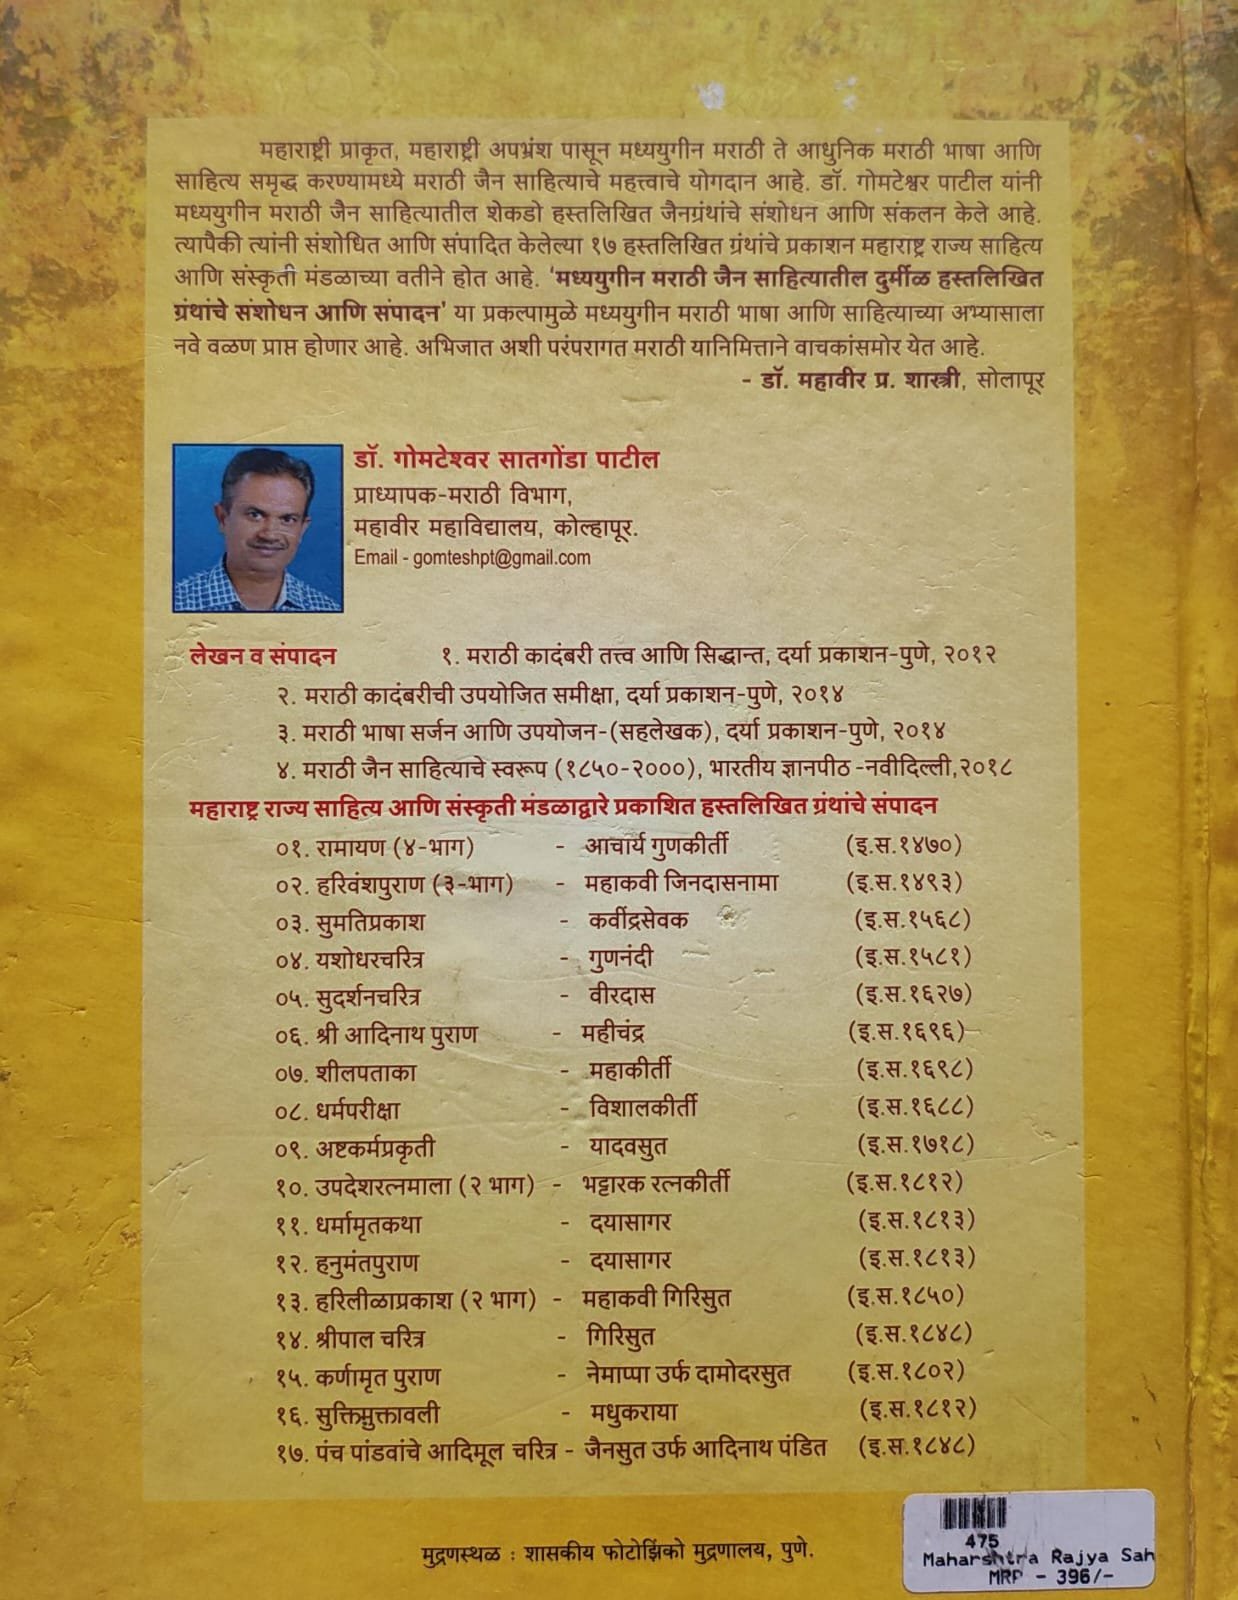 महाराष्ट्री प्राकृत, महाराष्ट्री अपभ्रंश पासून मध्ययुगीन मराठी ते आधुनिक मराठी भाषा आणि
साहित्य समृद्ध करण्यामध्ये मराठी जैन साहित्याचे महत्त्वाचे योगदान आहे. डॉ. गोमटेश्वर पाटील यांनी
मध्ययुगीन मराठी जैन साहित्यातील शेकडो हस्तलिखित जैनग्रंथांचे संशोधन आणि संकलन केले आहे.
त्यापैकी त्यांनी संशोधित आणि संपादित केलेल्या १७ हस्तलिखित ग्रंथांचे प्रकाशन महाराष्ट्र राज्य साहित्य
आणि संस्कृती मंडळाच्या वतीने होत आहे. 'मध्ययुगीन मराठी जैन साहित्यातील दुर्मीळ हस्तलिखित
ग्रंथांचे संशोधन आणि संपादन' या प्रकल्पामुळे मध्ययुगीन मराठी भाषा आणि साहित्याच्या अभ्यासाला
नवे वळण प्राप्त होणार आहे. अभिजात अशी परंपरागत मराठी यानिमित्ताने वाचकांसमोर येत आहे.
- डॉ. महावीर प्र. शास्त्री, सोलापूर
डॉ. गोमटेश्वर सातगोंडा पाटील
प्राध्यापक-मराठी विभाग,
महावीर महाविद्यालय, कोल्हापूर.
Email - gomteshpt@gmail.com
लेखन व संपादन १. मराठी कादंबरी तत्त्व आणि सिद्धान्त, दर्या प्रकाशन-पुणे, २०१२
२. मराठी कादंबरीची उपयोजित समीक्षा, दर्या प्रकाशन-पुणे, २०१४
३. मराठी भाषा सर्जन आणि उपयोजन-(सहलेखक), दर्या प्रकाशन-पुणे, २०१४
४. मराठी जैन साहित्याचे स्वरूप (१८५०-२०००), भारतीय ज्ञानपीठ-नवीदिल्ली,२०१८
महाराष्ट्र राज्य साहित्य आणि संस्कृती मंडळाद्वारे प्रकाशित हस्तलिखित ग्रंथांचे संपादन
०१. रामायण (४-भाग) - आचार्य गुणकीर्ती (इ.स.१४७०)
०२. हरिवंशपुराण (३-भाग) - महाकवी जिनदासनामा (इ.स.१४९३)
०३. सुमतिप्रकाश - कवींद्रसेवक (इ.स.१५६८)
०४. यशोधरचरित्र - गुणनंदी (इ.स.१५८१)
०५. सुदर्शनचरित्र - वीरदास (इ.स.१६२७)
०६. श्री आदिनाथ पुराण - महीचंद्र (इ.स.१६९६)
०७. शीलपताका - महाकीर्ती (इ.स.१६९८)
०८. धर्मपरीक्षा - विशालकीर्ती (इ.स.१६८८)
०९. अष्टकर्मप्रकृती - यादवसुत (इ.स.१७१८)
१०. उपदेशरत्नमाला (२ भाग) - भट्टारक रत्नकीर्ती (इ.स.१८१२)
११. धर्मामृतकथा - दयासागर (इ.स.१८१३)
१२. हनुमंतपुराण - दयासागर (इ.स.१८१३)
१३. हरिलीळाप्रकाश (२ भाग) - महाकवी गिरिसुत (इ.स.१८५०)
१४. श्रीपाल चरित्र - गिरिसुत (इ.स.१८४८)
१५. कर्णामृत पुराण - नेमाप्पा उर्फ दामोदरसुत (इ.स.१८०२)
१६. सुक्तिमुक्तावली - मधुकराया (इ.स.१८१२)
१७. पंच पांडवांचे आदिमूल चरित्र - जैनसुत उर्फ आदिनाथ पंडित (इ.स.१८४८)
मुद्रणस्थळ : शासकीय फोटोझिंको मुद्रणालय, पुणे.
475
Maharshtra Rajya Sah
MRP - 396/-